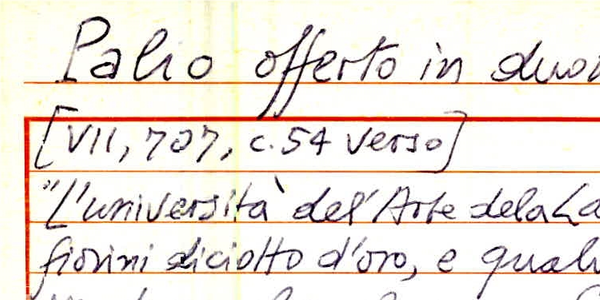 Palio offerto in duo
[VII, 707, c. 54 verso]
"L'università del'Arte dela La
fiorini diciotto d'oro, e quali